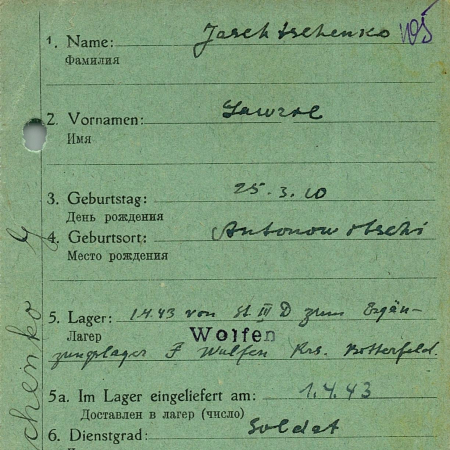 1. Name: Jaschtschenko
Фамилия
2. Vornamen:
Имя
3. Geburtstag: 25.3.10
День рождения
4. Geburtsort:
Место рождения
5. Lager: 1.4.43 von St. IV D zum Ergän-
Лагер Wolfen
zungslager F Wulfen Krs. Bitterfeld.
5a. Im Lager eingeliefert am: 1.4.43
Доставлен в лагер (число)
6. Dienstgrad: Soldat
chenko